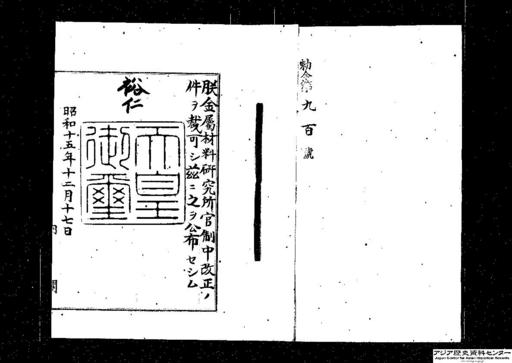 勅令第九百號
朕金屬材料研究所官制中改正ノ
件ヲ裁可シ茲ニ之ヲ公布セシム
裕仁
天皇
御璽
昭和十五年十二月十七日
内閣
アジア歴史資料センター
Japan Center for Asian Historical Records